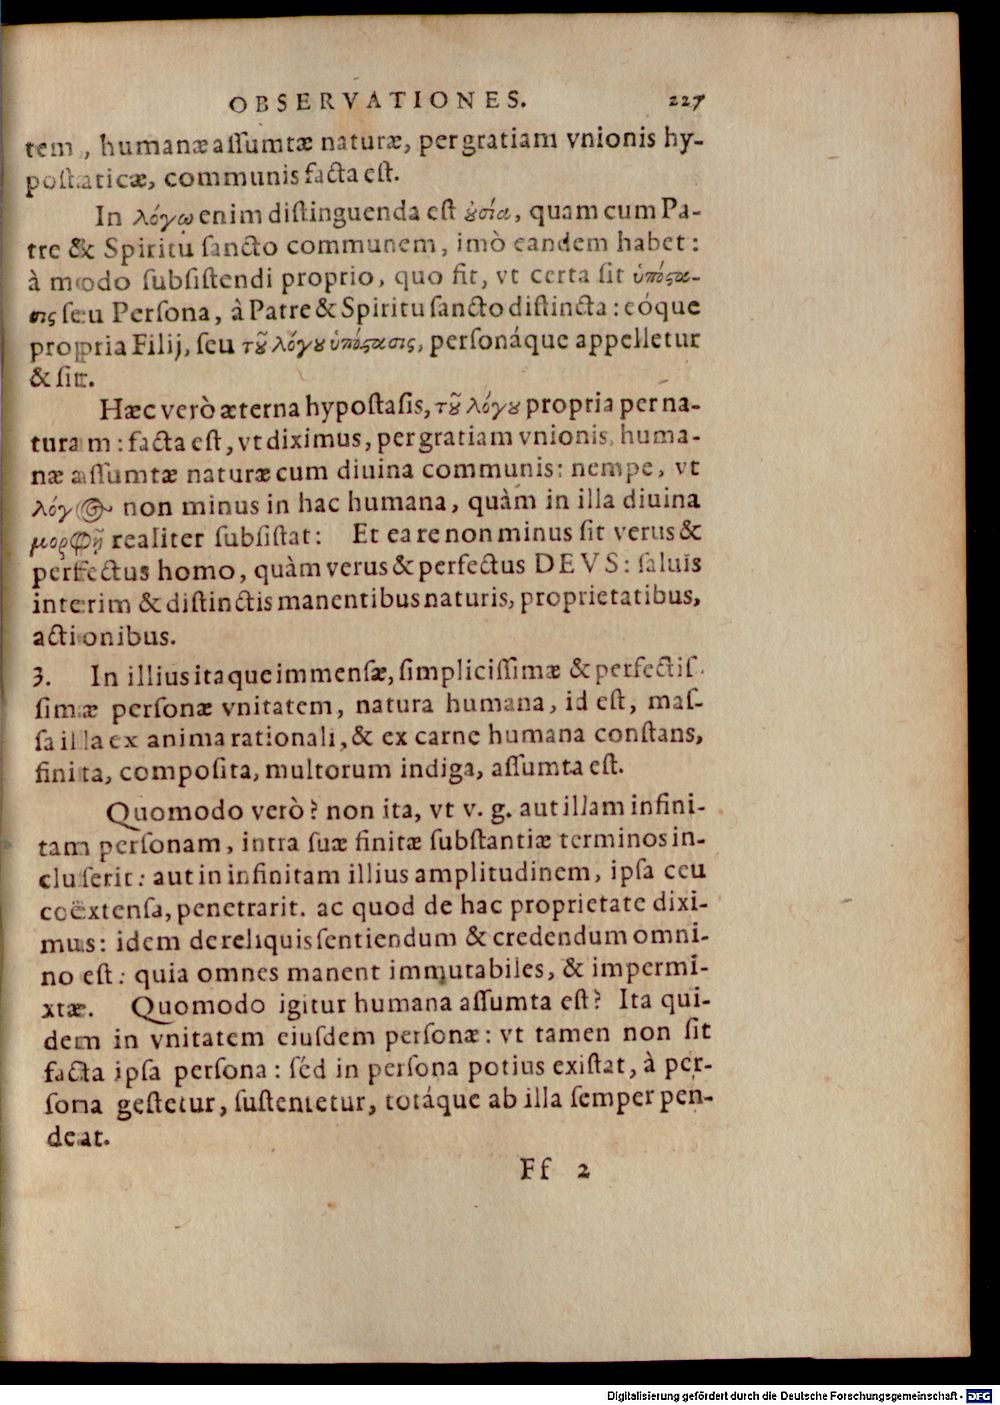 OBSERVATIONES. 227
tem, humanæ aſſumtæ naturæ, per gratiam vnionis hy-
poſtaticæ, communis facta eſt.
In λόγω enim diſtinguenda eſt ȣ̓σία, quam cum Pa-
tre & Spiritu ſancto communem, imò eandem habet:
à modo ſubſiſtendi proprio, quo fit, vt certa ſit ὑπόςα-
σις ſeu Perſona, à Patre & Spiritu ſancto diſtincta: eóque
propria Filij, ſeu τȣ͂ λόγȣ ὑπόςασις, personáque appelletur
& ſit.
Hæc verò æterna hypoſtaſis, τȣ͂ λόγȣ propria per na-
turam: facta eſt, vt diximus, per gratiam vnionis, huma-
næ aſſumtæ naturæ cum diuina communis: nempe, vt
λόγος non minus in hac humana, quàm in illa diuina
μορφῇ realiter ſubſiſtat: Et ea re non minus ſit verus &
perfectus homo, quàm verus & perfectus DEVS: ſaluis
interim & diſtinctis manentibus naturis, proprietatibus,
actionibus.
3. In illius itaque immenſæ, ſimpliciſſimæ & perfectiſ-
ſimæ perſonæ vnitatem, natura humana, id eſt, maſ-
ſa illa ex anima rationali, & ex carne humana conſtans,
finita, compoſita, multorum indiga, aſſumta eſt.
Quomodo verò? non ita, vt v. g. aut illam infini-
tam perſonam, intra ſuæ finitæ ſubſtantiæ terminos in-
cluſerit: aut in infinitam illius amplitudinem, ipſa ceu
coëxtenſa, penetrarit. ac quod de hac proprietate dixi-
mus: idem de reliquis ſentiendum & credendum omni-
no eſt: quia omnes manent immutabiles, & impermi-
xtæ. Quomodo igitur humana aſſumta eſt? Ita qui-
dem in vnitatem eiuſdem perſonæ: vt tamen non ſit
facta ipſa perſona: ſéd in perſona potius exiſtat, à per-
ſona geſtetur, ſuſtentetur, totáque ab illa ſemper pen-
deat.
Ff 2
Digitalisierung gefördert durch die Deutsche Forschungsgemeinschaft - DFG